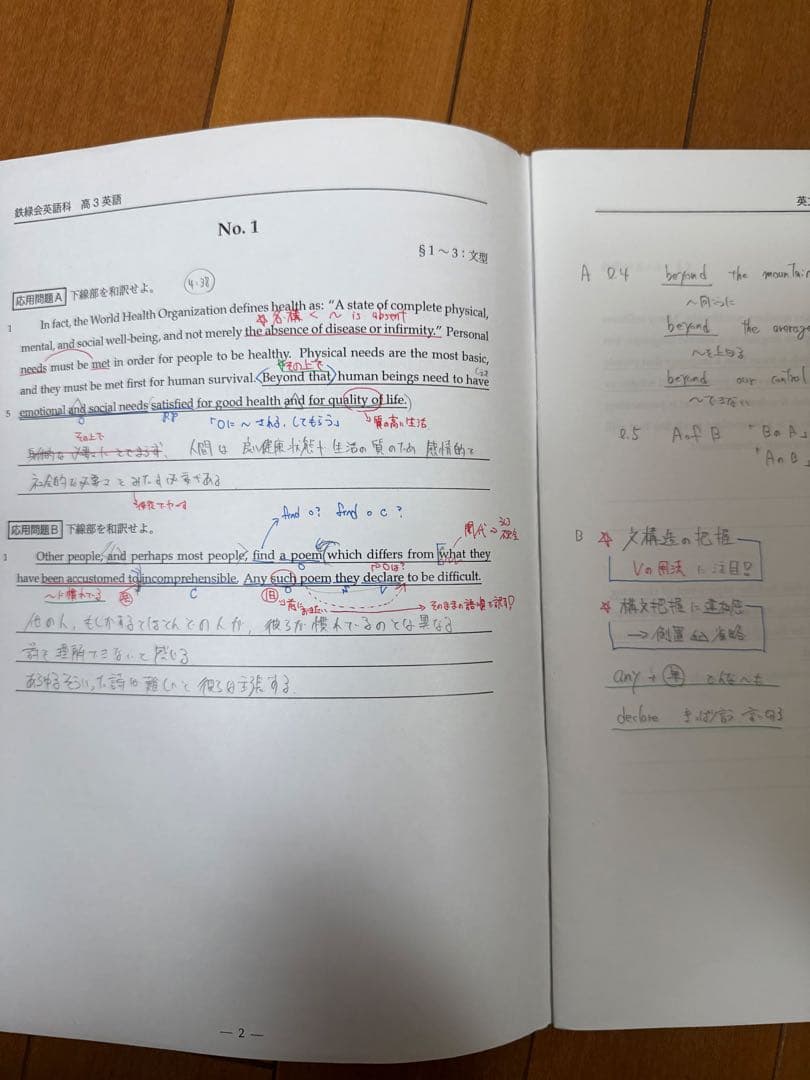 鉄緑会英語科 高3英語
No. 1
§1～3：文型
応用問題A 下線部を和訳せよ。 4.38
1 In fact, the World Health Organization defines health as: “A state of complete physical,
名構 < ~ is absent
mental, and social well-being, and not merely the absence of disease or infirmity.” Personal
needs must be met in order for people to be healthy. Physical needs are the most basic,
その上で
and they must be met first for human survival. Beyond that, human beings need to have
5 emotional and social needs satisfied for good health and for quality of life.
O PP 「Oに〜される、してもらう」 質の高い生活
その上で
人間は 良い健康状態や生活の質のため 感情的で
社会的な必要をみたす必要がある
find O? find O C?
応用問題B 下線部を和訳せよ。
関代
1 Other people, and perhaps most people, find a poem which differs from what they
have been accustomed to incomprehensible. Any such poem they declare to be difficult.
〜に慣れている C O S V
他の人、もしかするとほとんどの人が、彼らが慣れているのとは異なる
詩を理解できないと感じる
あらゆるそういった詩は難しいと彼らは主張する.
— 2 —
A l.4 beyond the mountain
beyond the average
〜を上回る
beyond our control
〜できない
l.5 A of B 「BのA」
「AのB」
B ☆ 文構造の把握
Vの用法に注目?
☆ 構文把握に違和感
→ 倒置 省略
any + 単 どんな〜も
declare